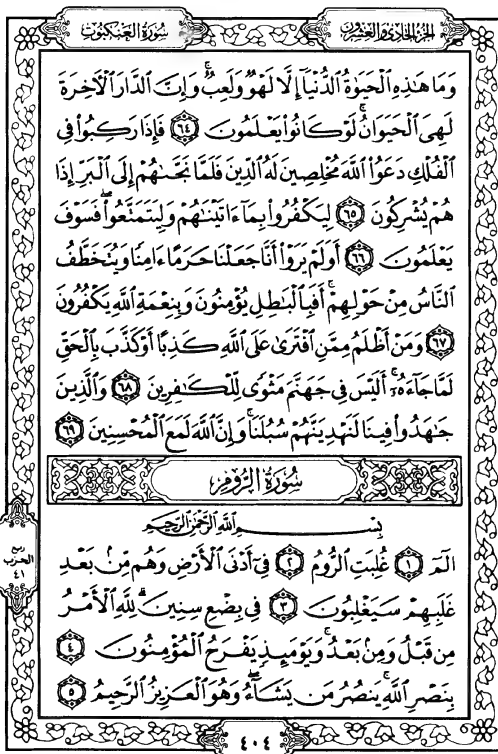 سُورَةُ العَنكَبُوتِ
الجُزْءُ الحَادِي وَالعِشْرُونَ
وَمَا هَٰذِهِ ٱلْحَيَوٰةُ ٱلدُّنْيَآ إِلَّا لَهْوٌ وَلَعِبٌ ۚ وَإِنَّ ٱلدَّارَ ٱلْأَخِرَةَ
لَهِىَ ٱلْحَيَوَانُ ۚ لَوْ كَانُوا۟ يَعْلَمُونَ ٦٤ فَإِذَا رَكِبُوا۟ فِى
ٱلْفُلْكِ دَعَوُا۟ ٱللَّهَ مُخْلِصِينَ لَهُ ٱلدِّينَ فَلَمَّا نَجَّىٰهُمْ إِلَى ٱلْبَرِّ إِذَا
هُمْ يُشْرِكُونَ ٦٥ لِيَكْفُرُوا۟ بِمَآ ءَاتَيْنَٰهُمْ وَلِيَتَمَتَّعُوا۟ ۖ فَسَوْفَ
يَعْلَمُونَ ٦٦ أَوَلَمْ يَرَوْا۟ أَنَّا جَعَلْنَا حَرَمًا ءَامِنًا وَيُتَخَطَّفُ
ٱلنَّاسُ مِنْ حَوْلِهِمْ ۚ أَفَبِٱلْبَٰطِلِ يُؤْمِنُونَ وَبِنِعْمَةِ ٱللَّهِ يَكْفُرُونَ
٦٧ وَمَنْ أَظْلَمُ مِمَّنِ ٱفْتَرَىٰ عَلَى ٱللَّهِ كَذِبًا أَوْ كَذَّبَ بِٱلْحَقِّ
لَمَّا جَآءَهُۥٓ ۚ أَلَيْسَ فِى جَهَنَّمَ مَثْوًى لِّلْكَٰفِرِينَ ٦٨ وَٱلَّذِينَ
جَٰهَدُوا۟ فِينَا لَنَهْدِيَنَّهُمْ سُبُلَنَا ۚ وَإِنَّ ٱللَّهَ لَمَعَ ٱلْمُحْسِنِينَ ٦٩
سُورَةُ الرُّومِ
بِسْمِ ٱللَّهِ ٱلرَّحْمَٰنِ ٱلرَّحِيمِ
الٓمٓ ١ غُلِبَتِ ٱلرُّومُ ٢ فِىٓ أَدْنَى ٱلْأَرْضِ وَهُم مِّنۢ بَعْدِ
غَلَبِهِمْ سَيَغْلِبُونَ ٣ فِى بِضْعِ سِنِينَ ۗ لِلَّهِ ٱلْأَمْرُ
مِن قَبْلُ وَمِنۢ بَعْدُ ۚ وَيَوْمَئِذٍ يَفْرَحُ ٱلْمُؤْمِنُونَ ٤
بِنَصْرِ ٱللَّهِ ۚ يَنصُرُ مَن يَشَآءُ ۖ وَهُوَ ٱلْعَزِيزُ ٱلرَّحِيمُ ٥
ربع
الحزب
٤١
٤٠٤